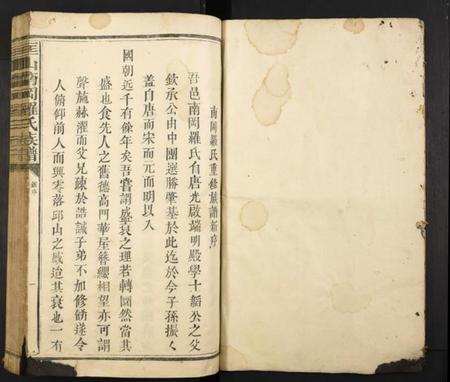 南岡羅氏重修族譜新序
吾邑南岡羅氏自唐光啟端明殿學十韜公之父
欽承公由中團選勝肇基於此迄於今子孫振く
蓋自唐而宋而元而明以入
國朝远千有餘年矣吾嘗謂盛衰之理若轉圜然當其
盛也食先人之舊德高門華屋簪纓相望亦可謂
聲施赫濯而父兄疎於誥誡子弟不加修飭遂令
人俯仰前人而興零落邱山之感迨其衰也一有
南岡羅氏族譜
新序
一